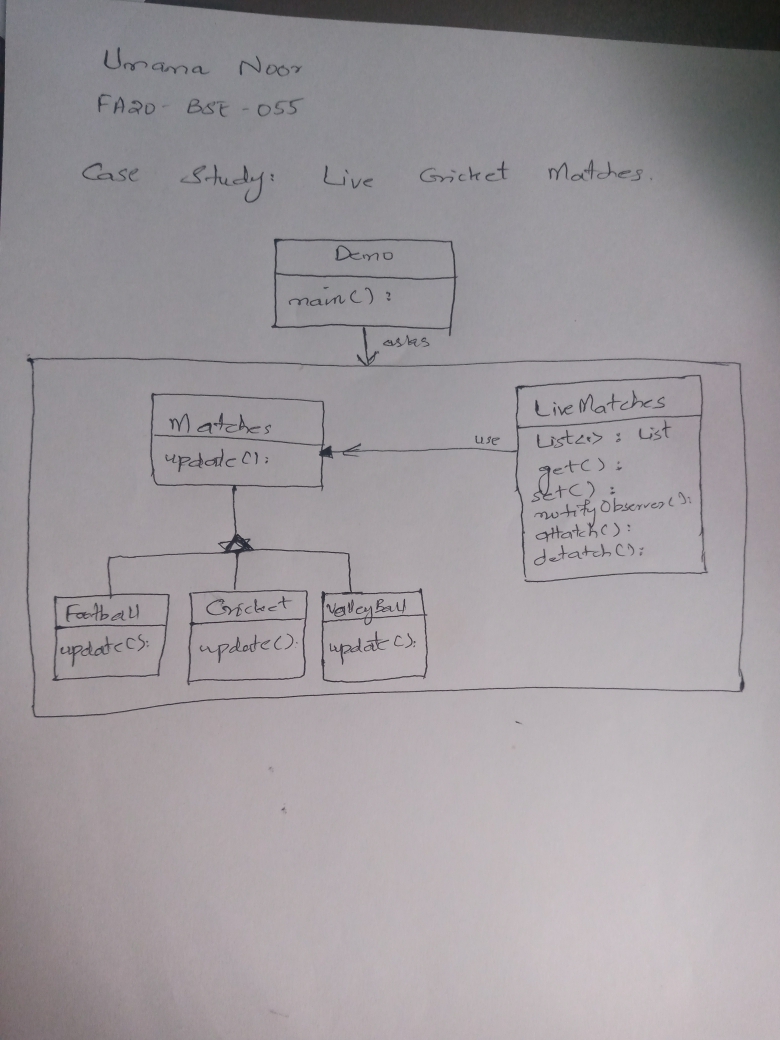 Umama Noor
FA20-BSE-055
Case Study: Live Cricket Matches.
Demo
main():
asks
Matches
update():
use
LiveMatches
List<> : List
get():
set():
notifyObserver():
attatch():
detatch():
Football
update():
Cricket
update():
VolleyBall
updat():